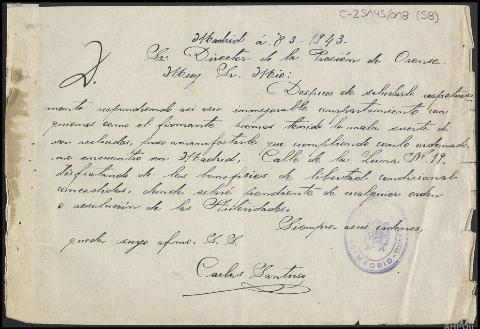 C-25145/018 (58)
Madrid á 8-3-1943-
Sr. Director de la Prisión de Orense.
Muy Sr. Mio:
D.
Despues de saludarle respetuosa
mente respondiendo asi a su inmejorable comportamiento con
quienes como el firmante hemos tenido la mala suerte de
ser recluidos, paso a manifestarle que cumpliendo con lo ordenado,
me encuentro en Madrid, Calle de la Luna Nº 19.
disfrutando de los beneficios de libertad condicional
concedidos, donde estaré pendiente de cualquier orden
o resolución de las Autoridades.
Siempre a sus ordenes,
queda suyo afmo. S. S.
Carlos Santoso
MADRID
AHPOu